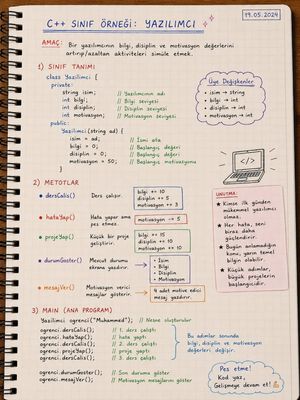 19.05.2024
C++ SINIF ÖRNEĞİ: YAZILIMCI
AMAÇ: Bir yazılımcının bilgi, disiplin ve motivasyon değerlerini
artırıp/azaltan aktiviteleri simüle etmek.
1) SINIF TANIMI
class Yazilimci {
private:
string isim; // Yazılımcının adı
int bilgi; // Bilgi seviyesi
int disiplin; // Disiplin seviyesi
int motivasyon; // Motivasyon seviyesi
public:
Yazilimci(string ad) {
isim = ad; // İsmi ata
bilgi = 0; // Başlangıç değeri
disiplin = 0; // Başlangıç değeri
motivasyon = 50; // Başlangıç motivasyonu
}
Üye Değişkenler
• isim → string
• bilgi → int
• disiplin → int
• motivasyon → int
</>
2) METOTLAR
• dersCalis() Ders çalışır.
bilgi += 10
disiplin += 5
motivasyon += 3
• hataYap() Hata yapar ama pes etmez.
motivasyon -= 5
• projeYap() Küçük bir proje geliştirir.
bilgi += 15
disiplin += 10
motivasyon += 10
• durumGoster() Mevcut durumu ekrana yazdırır.
• İsim
• Bilgi
• Disiplin
• Motivasyon
• mesajVer() Motivasyon verici mesajlar gösterir.
4 adet motive edici
mesaj yazdırır.
UNUTMA:
★ Kimse ilk günden
mükemmel yazılımcı
olmaz.
★ Her hata, seni
biraz daha
güçlendirir.
★ Bugün anlamadığın
konu, yarın temel
bilgin olabilir.
★ Küçük adımlar,
büyük projelerin
başlangıcıdır.
3) MAIN (ANA PROGRAM)
Yazilimci ogrenci("Muhammed"); // Nesne oluşturulur
ogrenci.dersCalis(); // 1. ders çalıştı
ogrenci.hataYap(); // hata yaptı
ogrenci.dersCalis(); // 2. ders çalıştı
ogrenci.projeYap(); // proje yaptı
ogrenci.dersCalis(); // 3. ders çalıştı
Bu adımlar sonunda
bilgi, disiplin ve motivasyon
değerleri değişir.
ogrenci.durumGoster(); // Son durumu göster
ogrenci.mesajVer(); // Motivasyon mesajlarını göster
Pes etme!
Kod yaz,
Gelişmeye devam et!